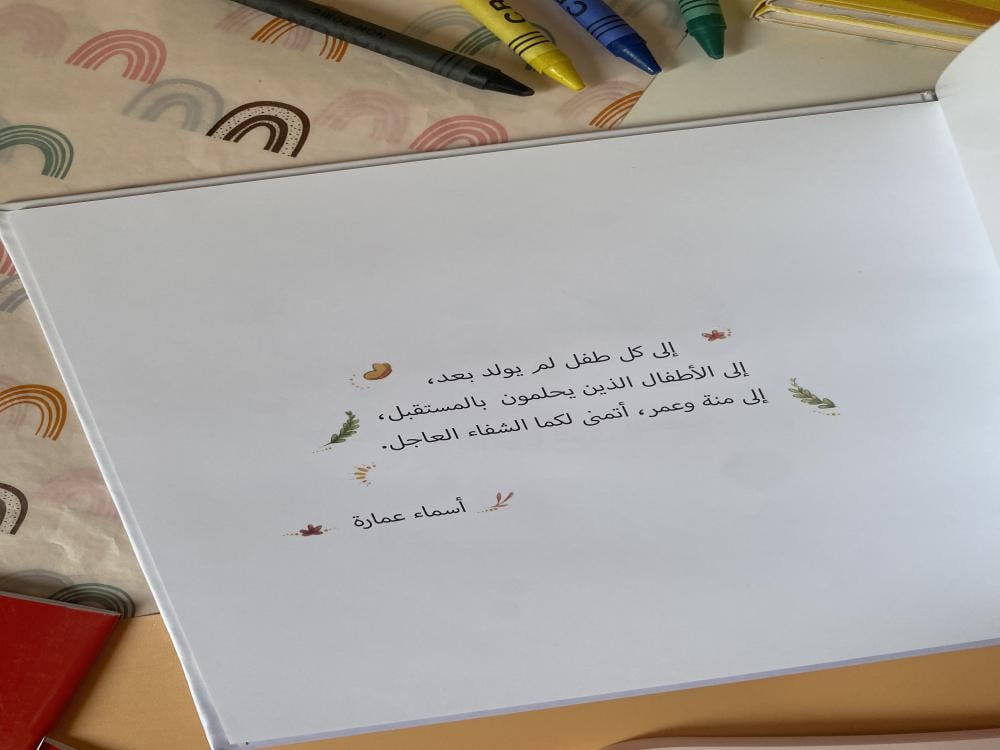 إلى كل طفل لم يولد بعد،
إلى الأطفال الذين يحلمون بالمستقبل،
إلى منة وعمر، أتمنى لكما الشفاء العاجل.
أسماء عمارة